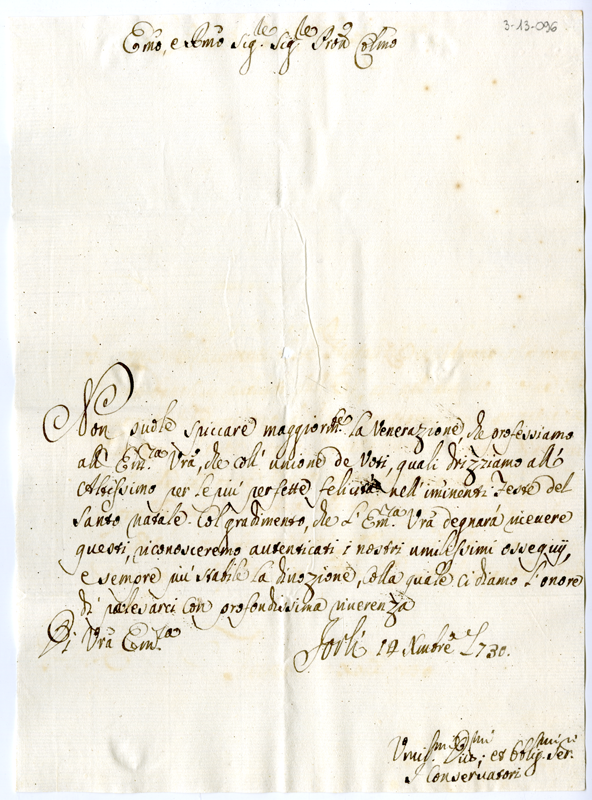 3-13-096
Emo, e Rmo Sig.re Sig.re Pron Colmo
Non suole spiccare maggiormte la Venerazione, che professiamo
all' Em.za Vrã, che coll' unione de Voti, quali drizziamo all'
Altissimo per le più perfette felicità nell' iminenti Feste del
Santo natale. Col gradimento, che L' Em.za Vrã degnarà ricevere
questi, riconosceremo autenticati i nostri umilissimi ossequij,
e sempre più stabile la divozione, colla quale ci diamo L' onore
di palesarci con profondissima riverenza
Di Vrã Em.za
Forlì 14 Nmbre 1730.
Umis.mi Div.mi et Oblig.mi Ser.
I Conservatori